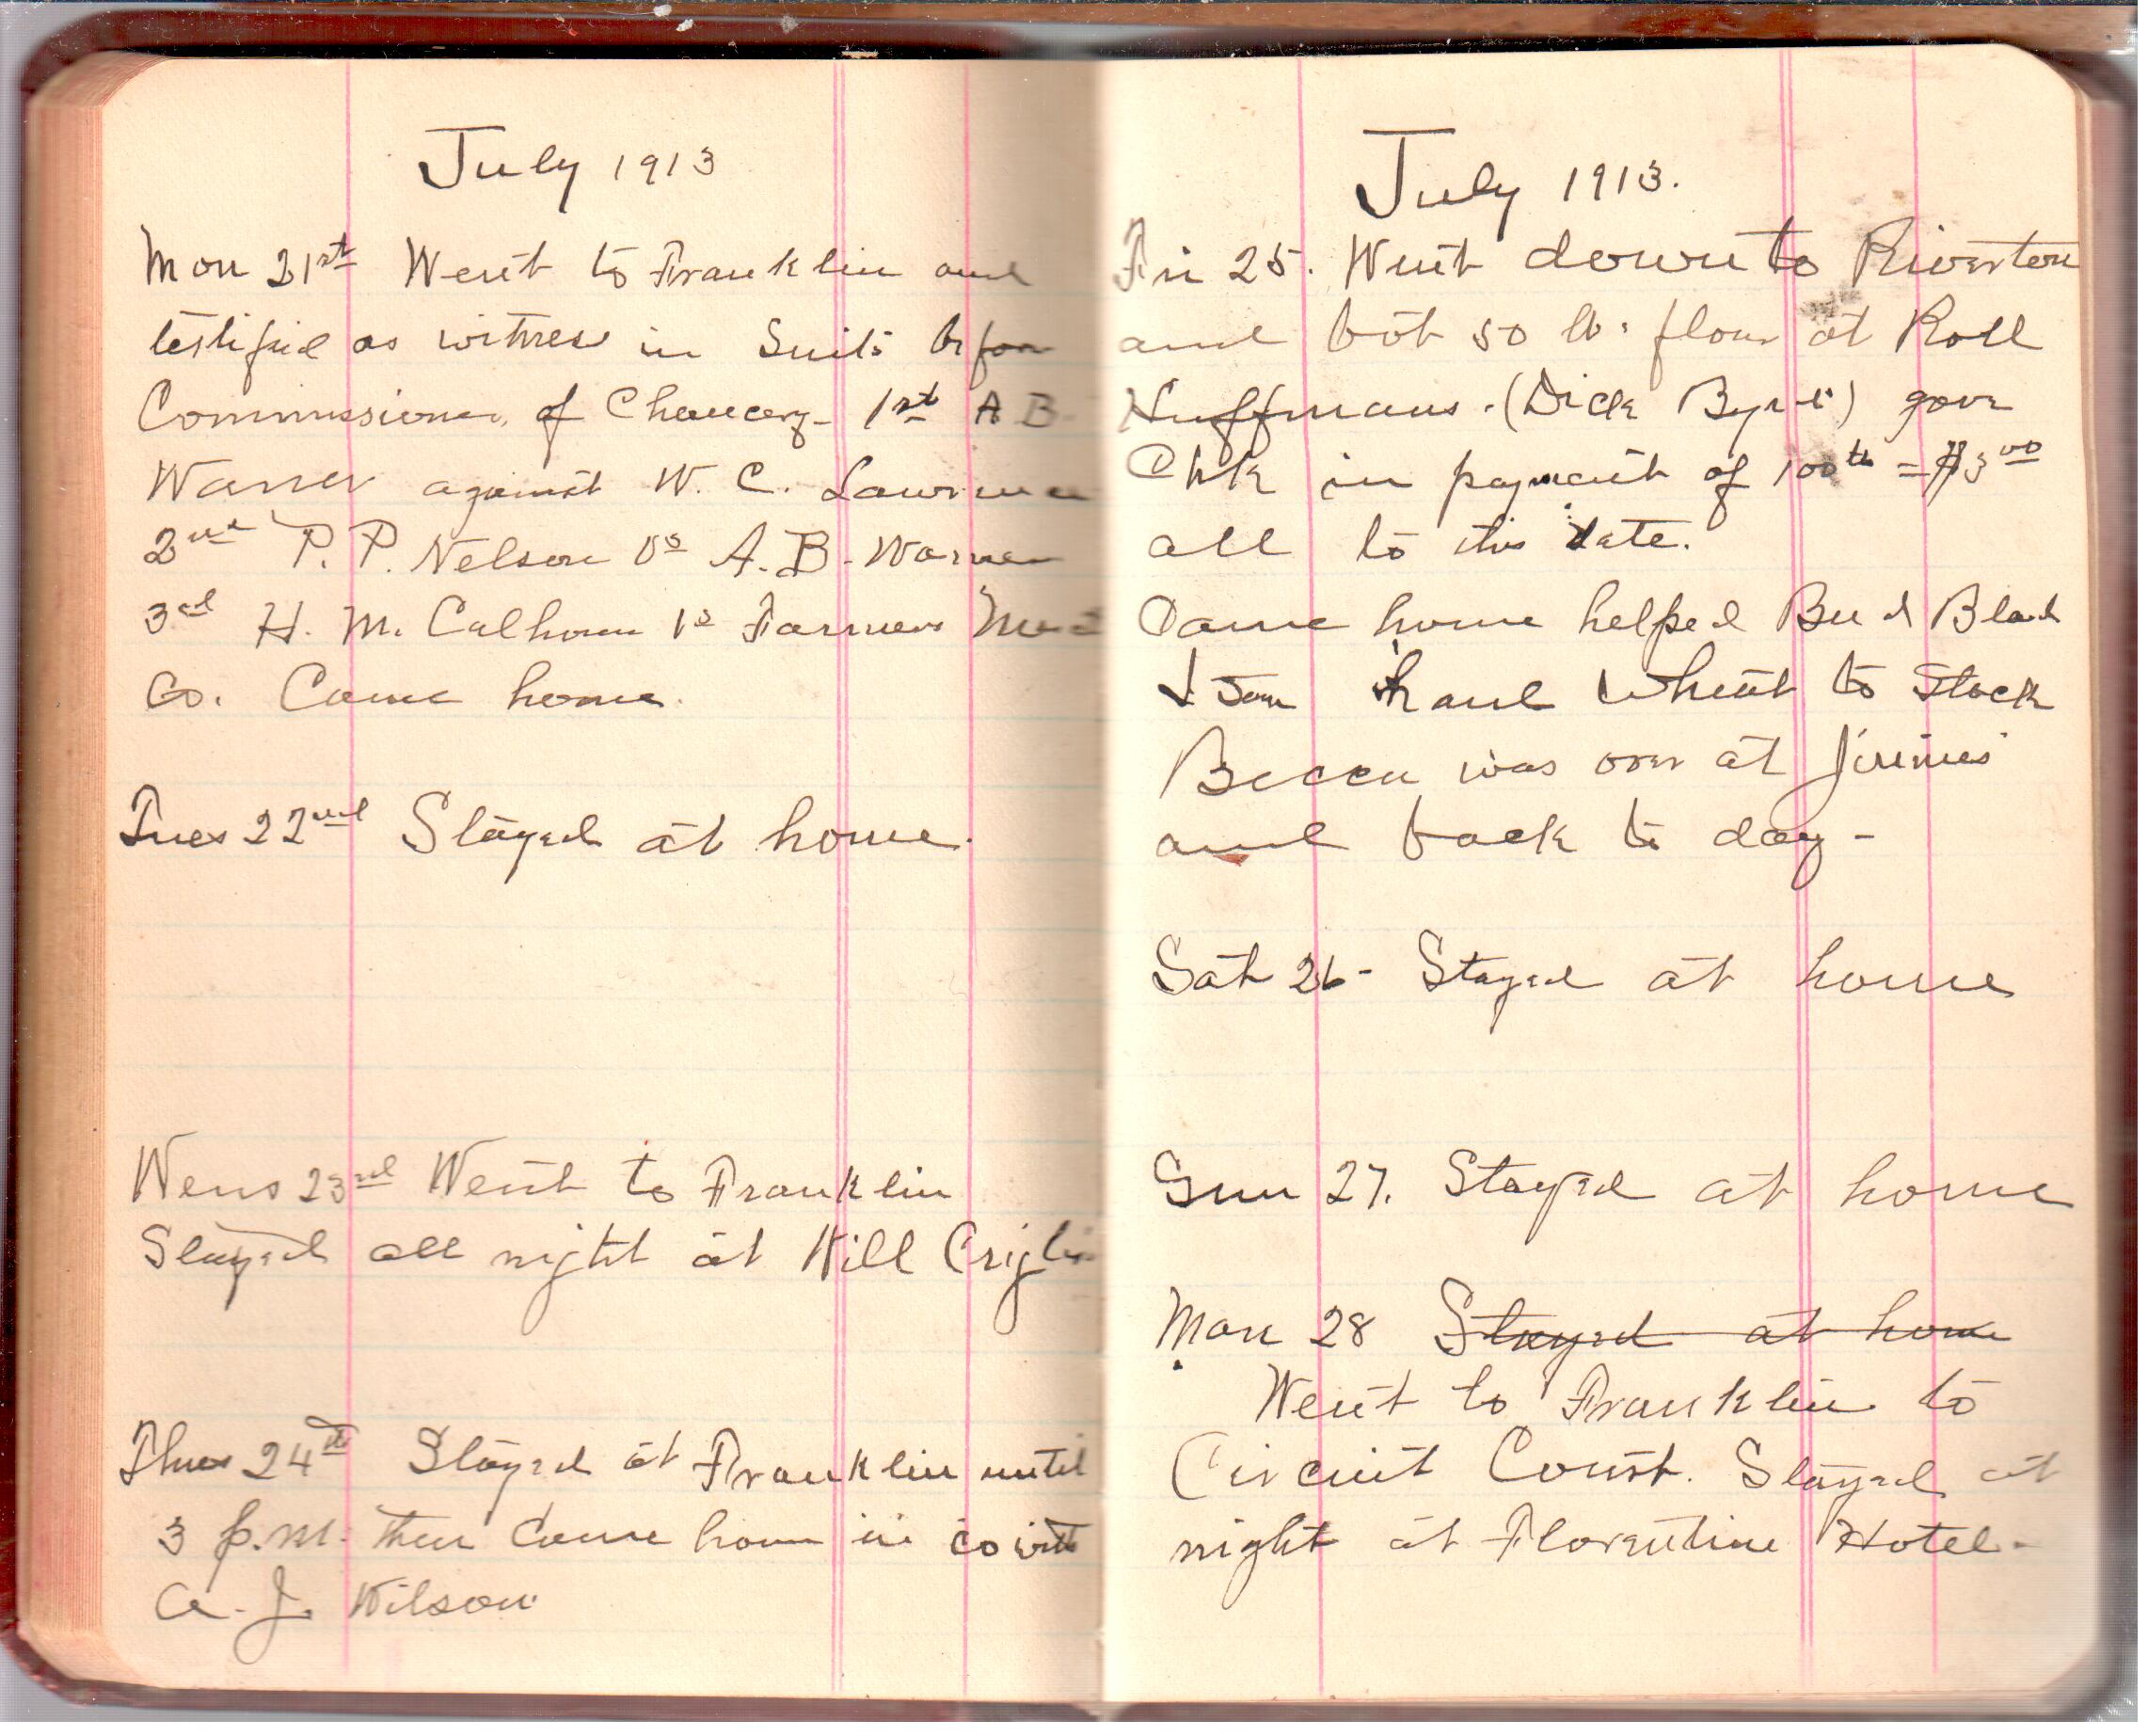 July 1913
Mon 21st Went to Franklin and
testified as witness in Suits before
Commissioner of Chancery 1st A B
Warner against W. C. Lawrence
2nd P. P. Nelson vs A. B. Warner
3rd H. M. Calhoun vs Farmers
Co. Came home.
Tues 22nd Stayed at home.
Wens 23rd Went to Franklin
Stayed all night at Will
Thurs 24th Stayed at Franklin until
3 p.m. then came home in co with
A. J. Wilson
July 1913.
Fri 25. Went down to Riverton
and bot 50 lb. flour at Roll
Huffmans. (Dick ) gave
Chk in payment of 100 lb = $3 00
all to this date.
Came home helped Bud
haul Wheat to Stack
was over at Jimies
and back to day -
Sat 26 - Stayed at home
Sun 27. Stayed at home
Mon 28 Stayed at home
Went to Franklin to
Circuit Court. Stayed at
night at Florentine Hotel -